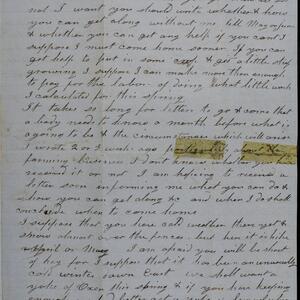 not I want you should write whether & how
you can get along without me till May or June
& whether you can get any help if you cant I
suppose I must come home sooner. If you can
get help to put in some crops & get a little stuff
growing I suppose I can make more than enough
to pay for the labor of doing what little work
I calculate for this spring
It takes so long for letters to go & come that
a body needs to know a month before what is
agoing to be & the circumstances which will arise
I wrote 2 or 3 weeks ago particularly about the
farming business I dont know whether you have
received it or not I am hoping to receive a
letter soon informing me what you can do &
how you can get along &c and when I shall
conclude when to come home
I suppose that you have cold weather there yet &
snow almost over the fences but here it is like
April or May I am afraid you will be short
of hay for I suppose that it has been an unusually
cold winter down East we shall want a
yoke of Oxen this spring & if you have keeping